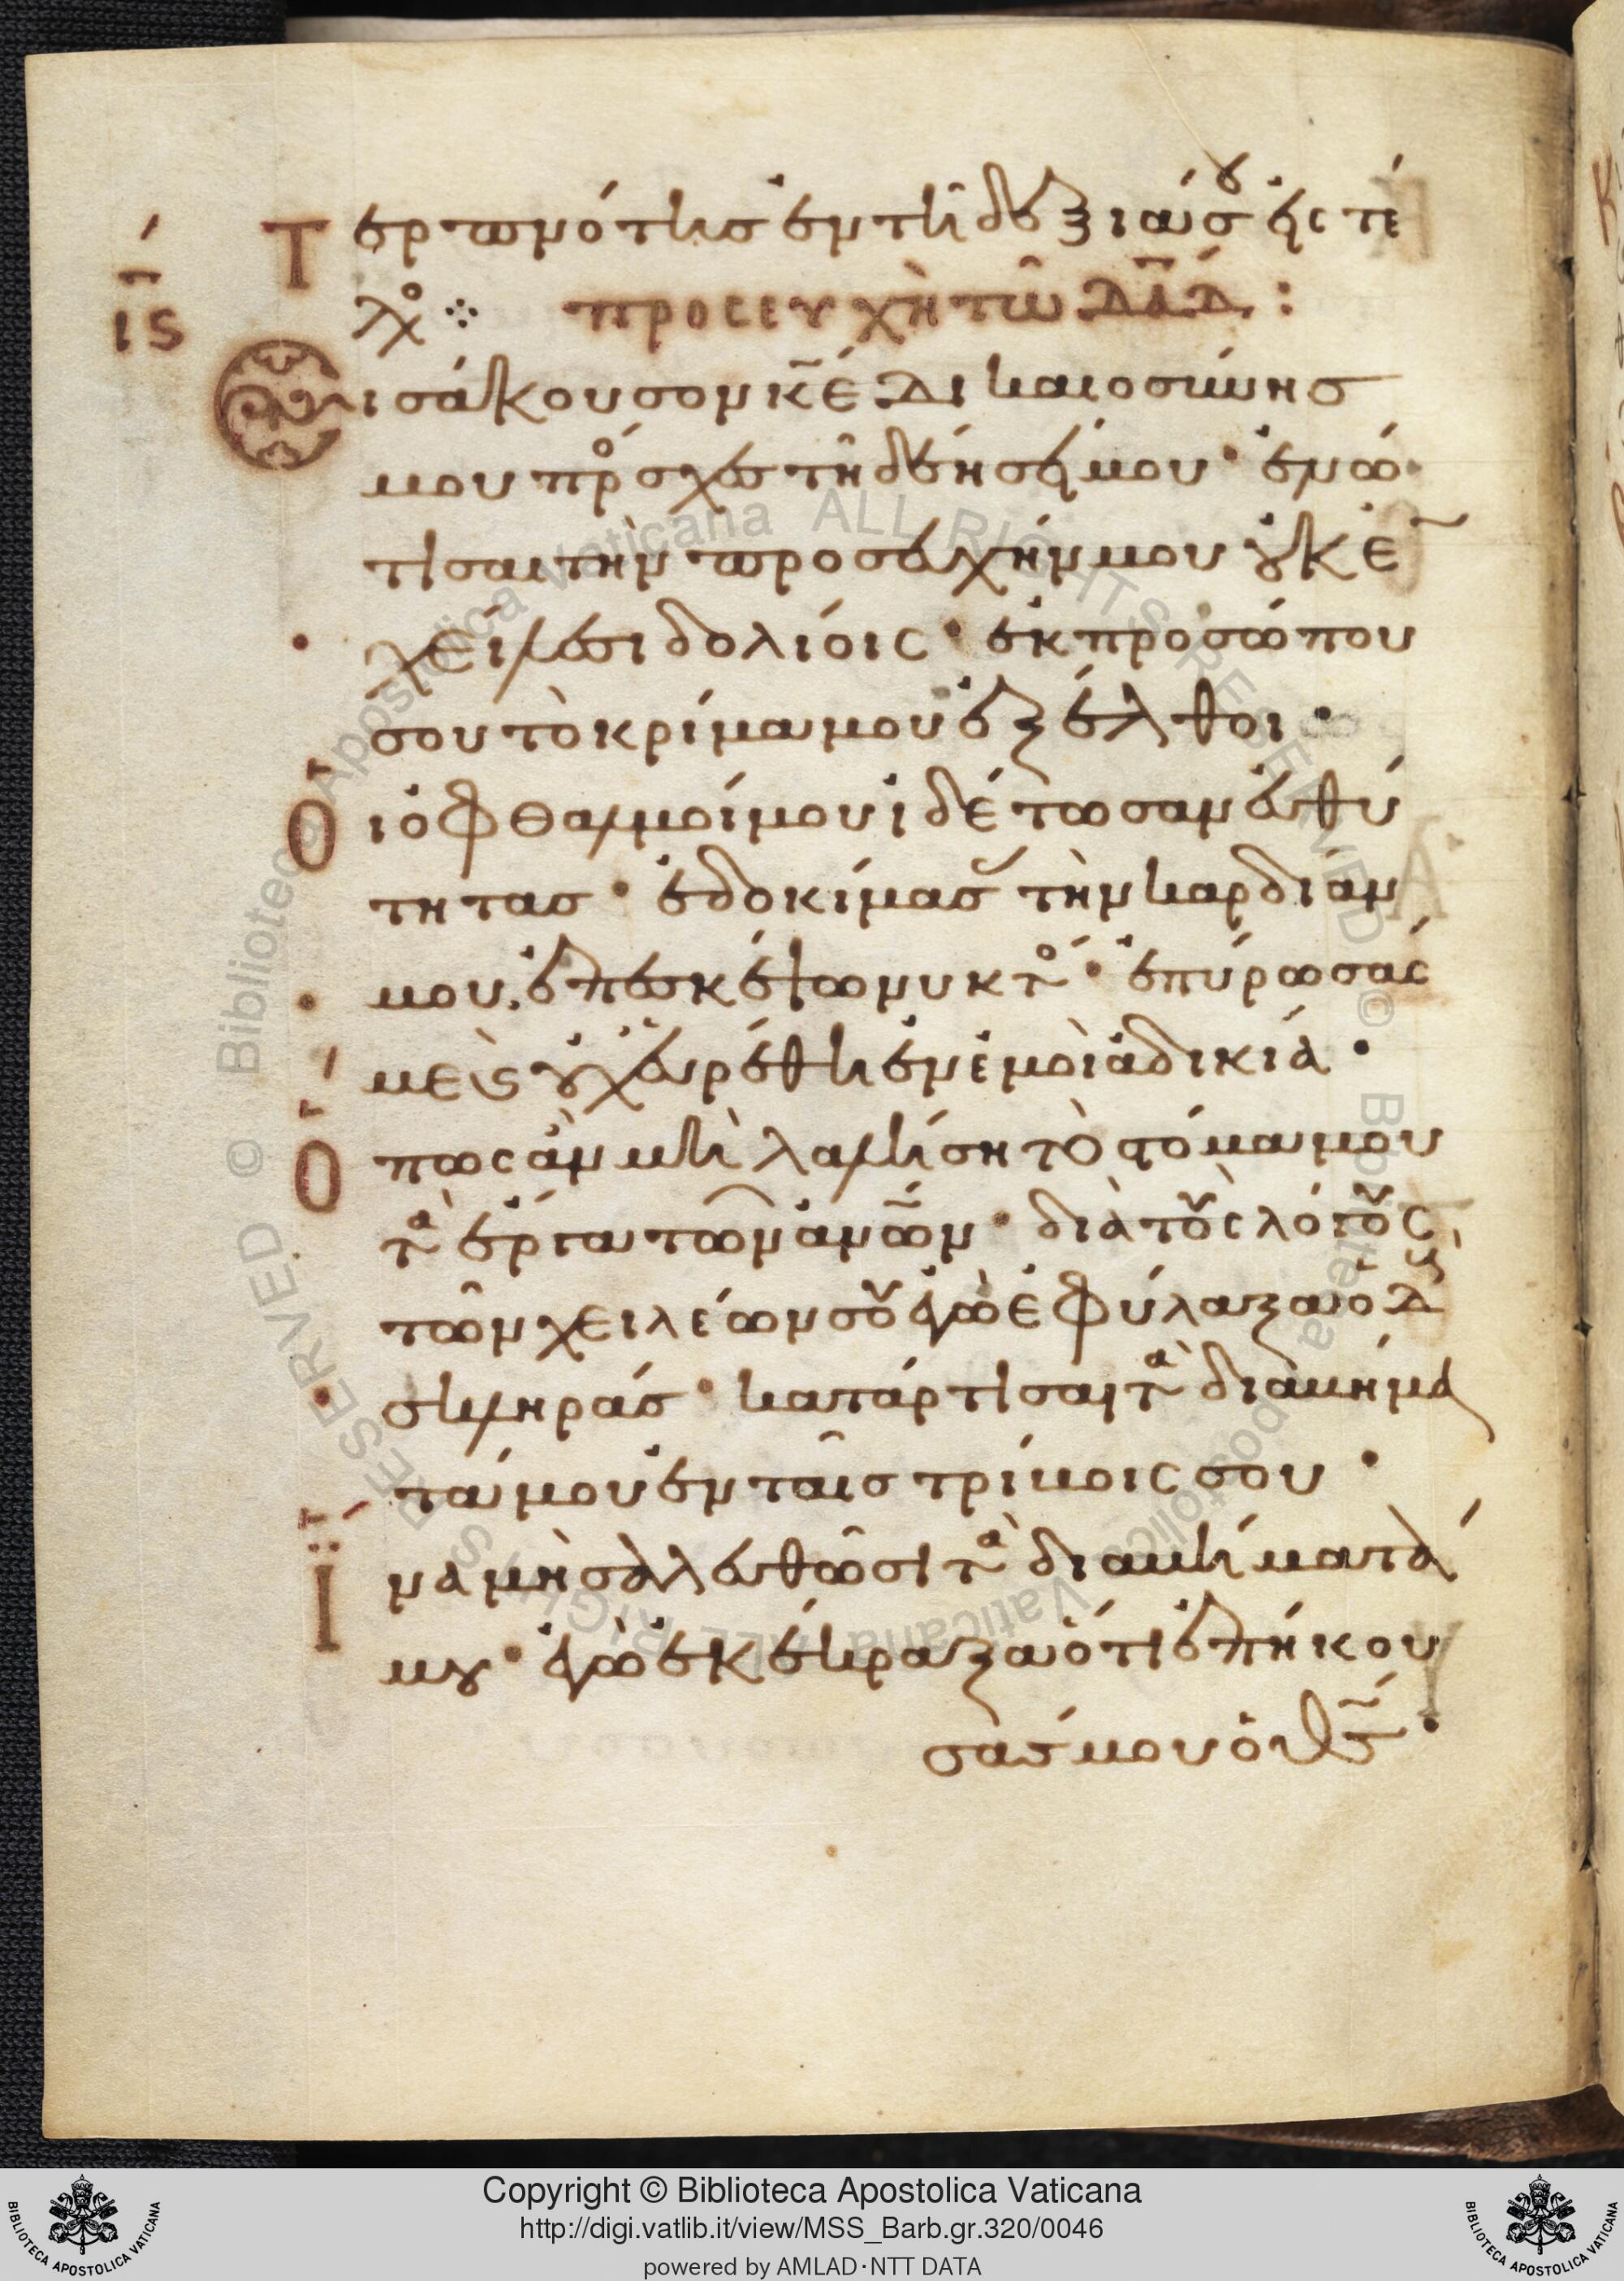 Τερπνότης ἐν τῇ δεξιᾷ σου εἰς τέ
λο ⁘ προσευχὴ τῶ δᾱδ :
ις
Εἰσάκουσον κ̄ε δικαιοσύνης
μου πρόσχες τῇ δεήσει μου · ἐνώ
τισαι τὴν προσευχήν μου οὐκ ἐ
χείλεσι δολίοις · ἐκ προσώπου
σου τὸ κρίμα μου ἐξέλθοι ·
Οἱ ὀφθαλμοί μου ἰδέτωσαν εὐθύ
τητας · ἐδοκίμασ τὴν καρδίαν
μου. ἐπεσκέψω νυκτο · ἐπύρωσάς
με ϗ οὐχ εὑρέθη ἐν ἐμοὶ ἀδικία ·
Ὅπως ἂν μὴ λαλήση τὸ στόμα μου
τὰ ἔργα τῶν ἀν̄ων · διὰ τοὺς λόγους
τῶν χειλέων σου ἐγὼ ἐφύλαξα ὁδ
σκληράς · κατάρτισαι τὰ διαβήμα
τά μου ἐν ταῖς τρίβοις σου ·
Ἵνα μὴ σαλευθῶσι τὰ διαβήματά
μου · ἐγὼ ἐκέκραξα ὅτι ἐπήκου
σάς μου ὁ θ̄ς ·
Copyright © Biblioteca Apostolica Vaticana
http://digi.vatlib.it/view/MSS_Barb.gr.320/0046
powered by AMLAD·NTT DATA